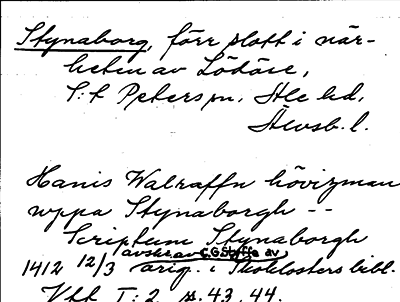 Stynaborg, förr slott i när-
heten av Lödöse,
S:t Peters sn. Ale hd,
Älvsb. l.
Hanis Walraffn hövizman
uppa Stynaborgh --
Scriptum Stynaborgh
avskr. av C.G. Styffe av
1412 12/3 orig. i Skoklosters bibl.
I: 2 s. 43, 44.